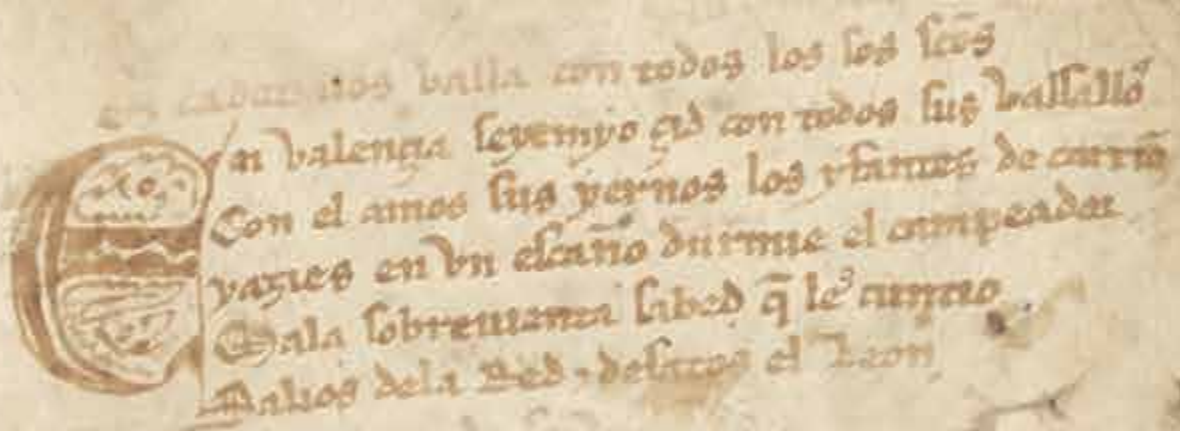 El criador nos valla con todos los sos scos
En valençia seye myo çid con todos sus vassallos
Con el amos sus yernos los yfantes de carrio
yazies en vn escaño durmie el campeador
Mala sobreuienta sabed q̃ les cuntio
Salios dela Red ⁊ desatos el Leon